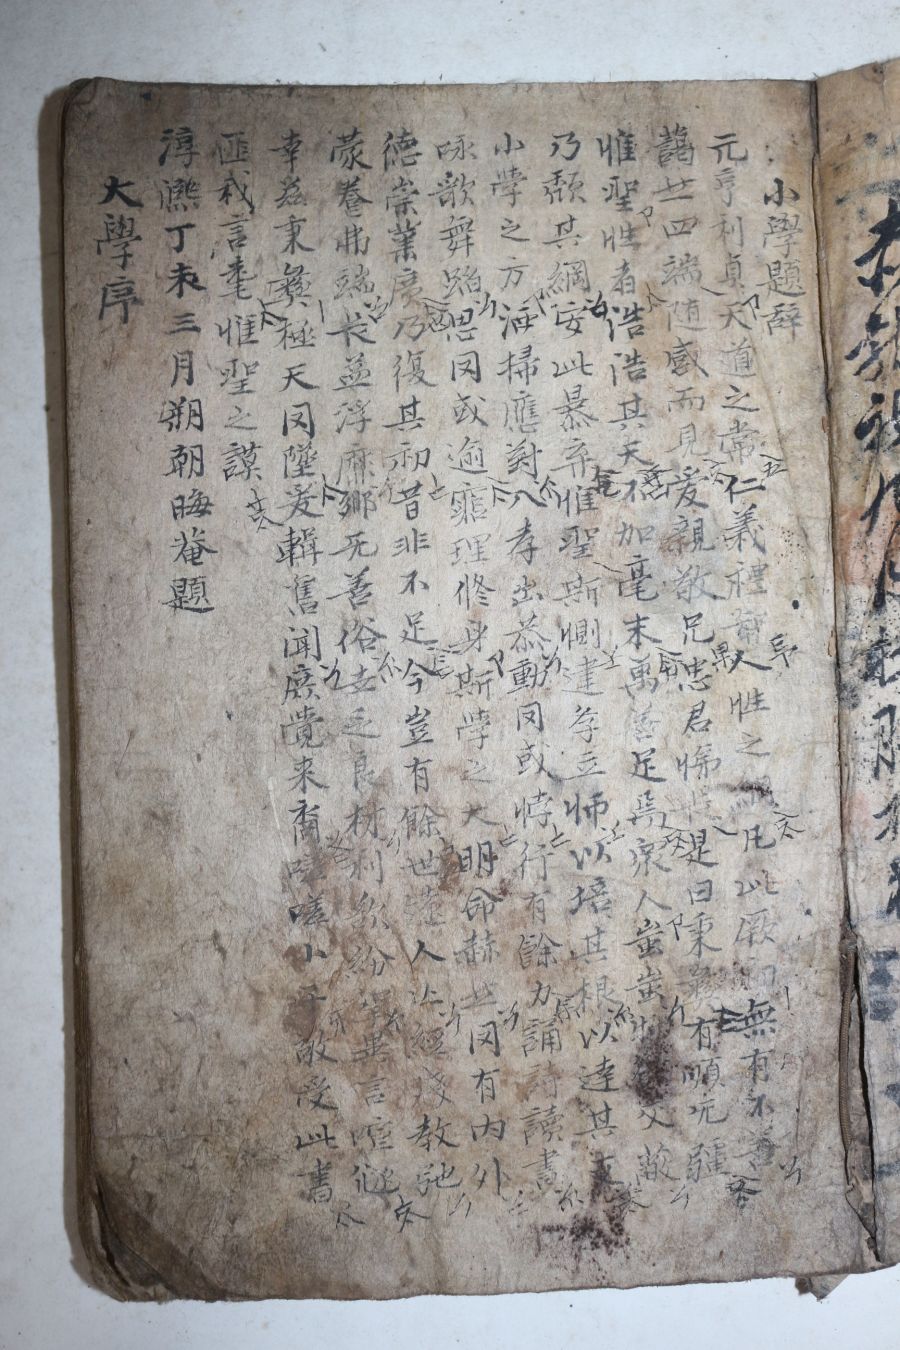 小學題辭
元亨利貞天道之常仁義禮智人性之綱凡此厥初無有不善
藹然四端随感而見爱親敬兄忠君悌長是曰秉彛有順无疆
惟聖性者浩浩其天不加毫末萬善足焉衆人蚩蚩物欲交蔽
乃頹其綱安此暴弃惟聖斯惻建学立师以培其根以達其支
小学之方洒掃應對入孝出恭動罔或悖行有餘力誦詩讀書
咏歌舞蹈思罔或逾窮理修身斯学之大明命赫然罔有内外
德崇業廣乃復其初昔非不足今豈有餘世遠人亡經残教弛
蒙養弗端长益浮靡鄉无善俗世乏良材利欲紛挐異言喧豗
幸兹秉彜極天罔墜爰輯舊闻庶覺来裔嗟嗟小子敬受此書
匪我言耄惟聖之謨
淳熙丁未三月朔朝晦菴題
大學序